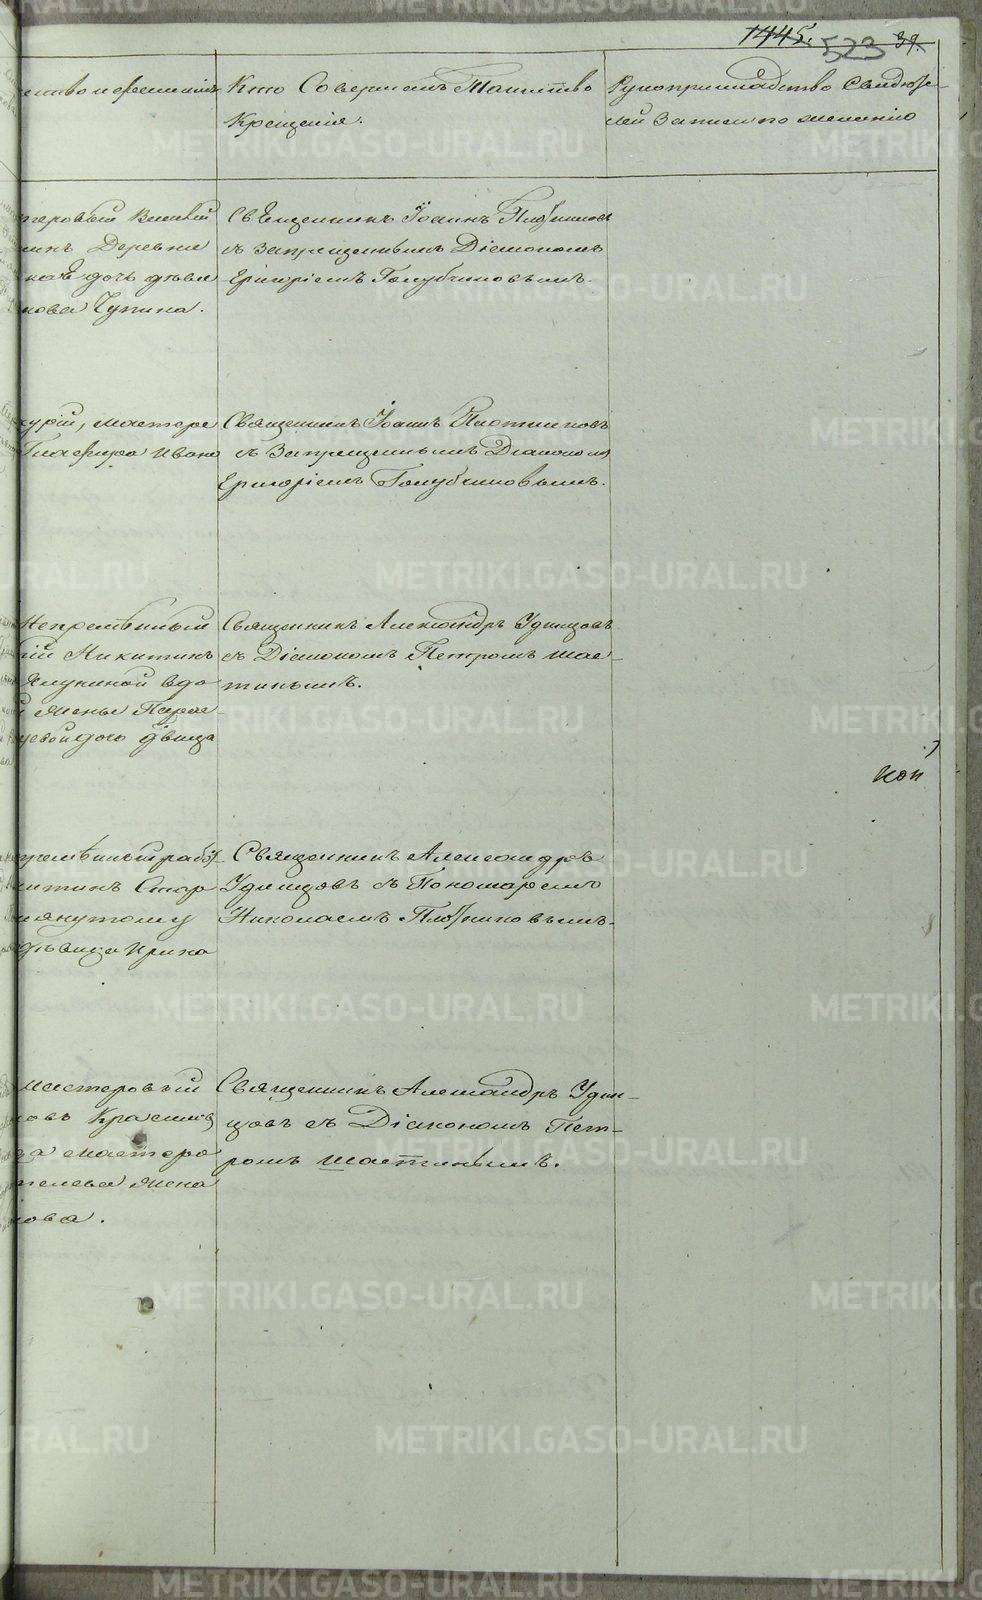 1445. 523 39.
Кто Совершалъ Таинство
Крещенія.
Рукоприкладство Свидѣте-
лей Записи по желанію
теровый
Деревни
дочь дѣвка
нова Чупина.
Священникъ Іоаннъ Плотниковъ
съ Запрещеннымъ Діакономъ
Григоріемъ Голубчиковымъ.
мастеро
Глафира Ивано
Священникъ Іоаннъ Плотниковъ
съ Запрещеннымъ Діакономъ
Григоріемъ Голубчиковымъ.
Непремѣнный
Никитинъ
вдо
женье Парас
дочь дѣвица
Священникъ Александръ Удинцовъ
съ Діакономъ Петромъ Шас-
тинымъ.
кон
премѣнный рабо
китинъ Стар
мянутому
дѣвица Ирина
Священникъ Александръ
Удинцовъ съ Пономаремъ
Николаемъ Плотниковымъ.
мастеровый
ковъ
да мастеро
жена
нова.
Священникъ Александръ Удин-
цовъ съ Діакономъ Пет-
ромъ Шастинымъ.
METRIKI.GASO-URAL.RU